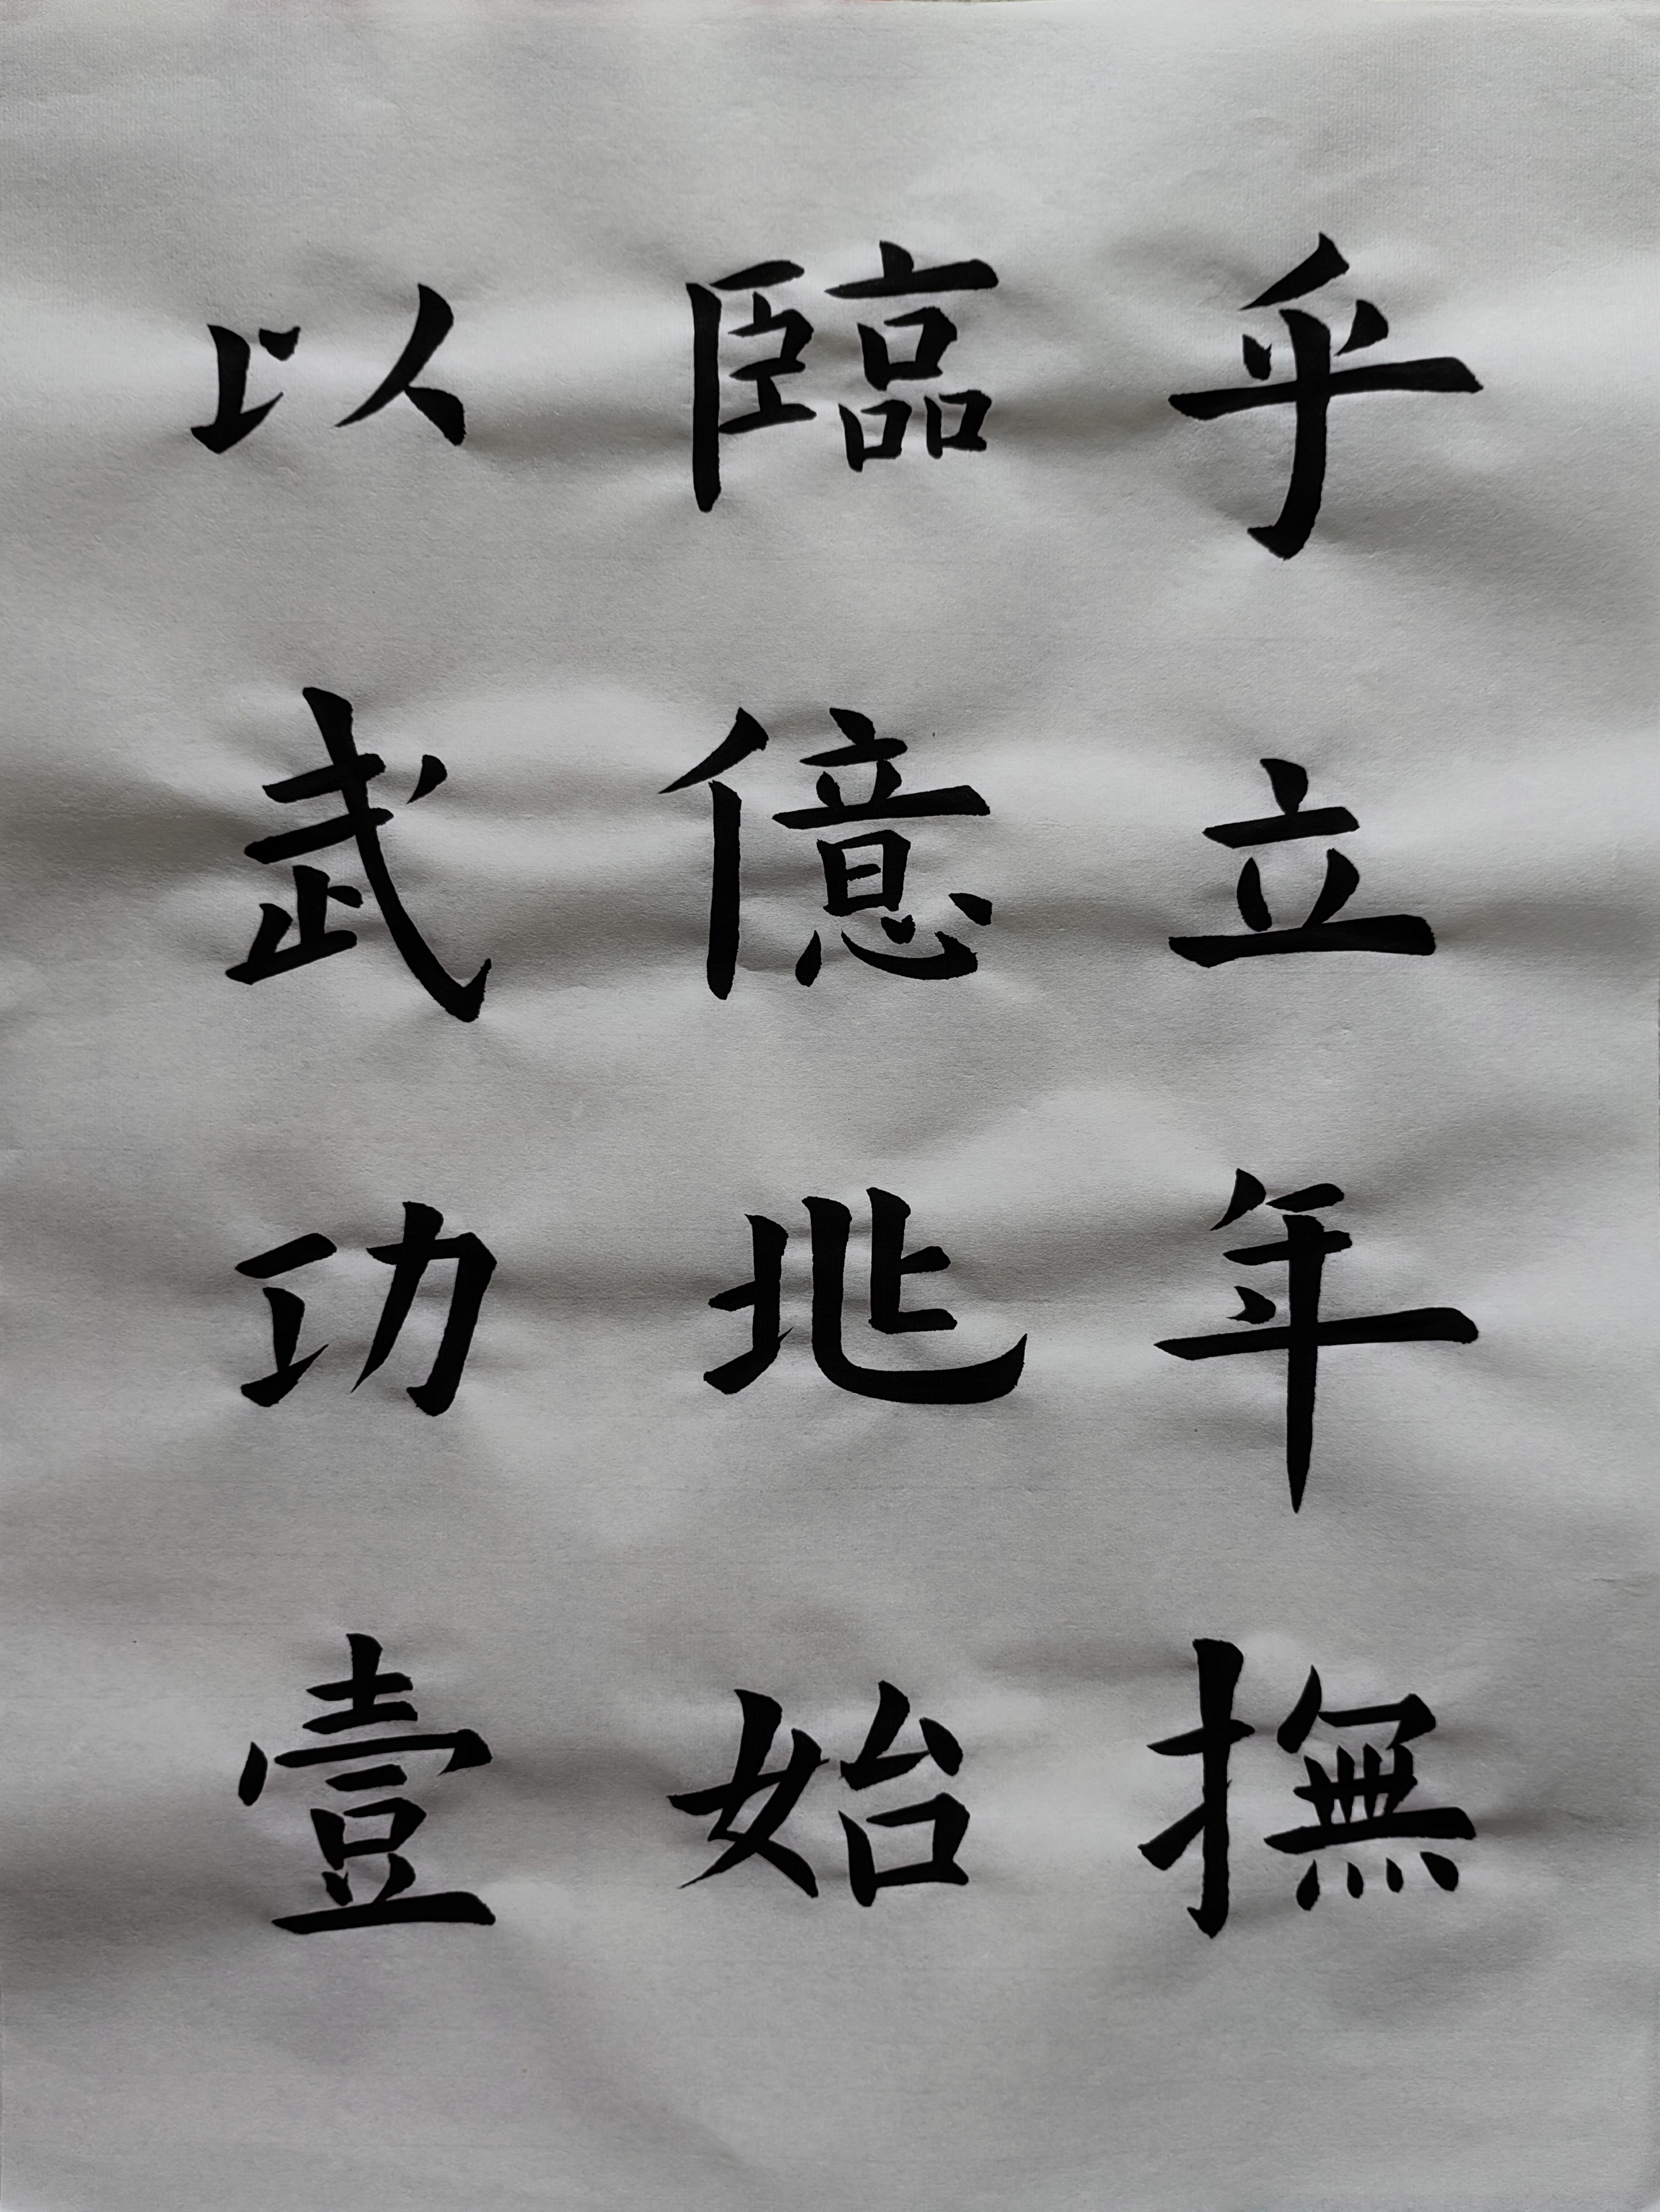 乎立年撫
臨億兆始
以武功壹